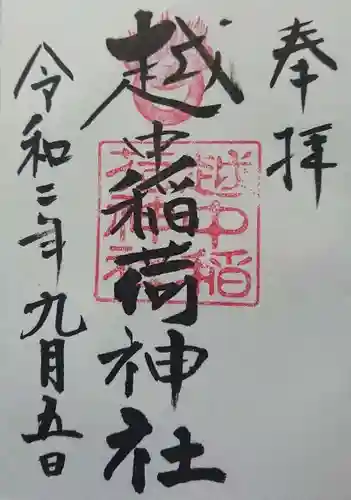 奉拝
越中稲荷神社
越中稲
荷神社
令和三年九月五日